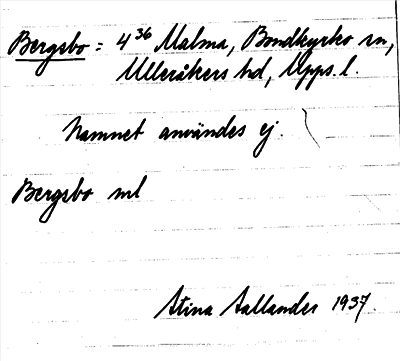 Bergsbo : 4³⁶ Malma, Bondkyrko sn,
Ulleråkers hd, Upps. l.
Namnet användes ej.
Bergsbo ml
Stina Aallander 1937.